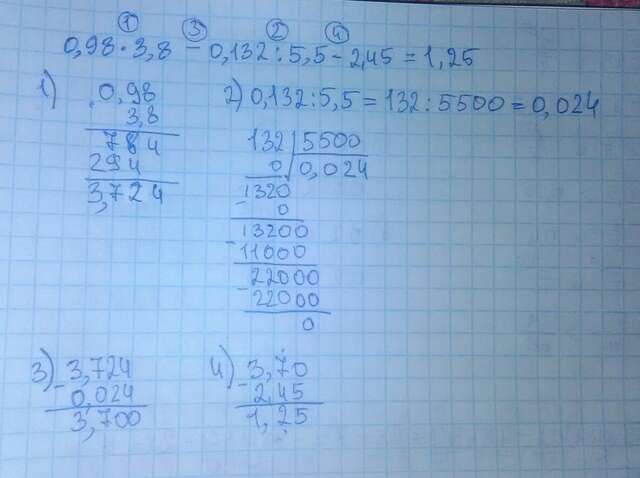 ① ③ ② ④
0,98 · 3,8 - 0,132 : 5,5 - 2,45 = 1,25
1) 0,98
3,8
784
294
3,724
2) 0,132 : 5,5 = 132 : 5500 = 0,024
132 | 5500
0 | 0,024
1320
- 0
13200
- 11000
22000
- 22000
0
3) 3,724
- 0,024
3,700
4) 3,70
- 2,45
1,25